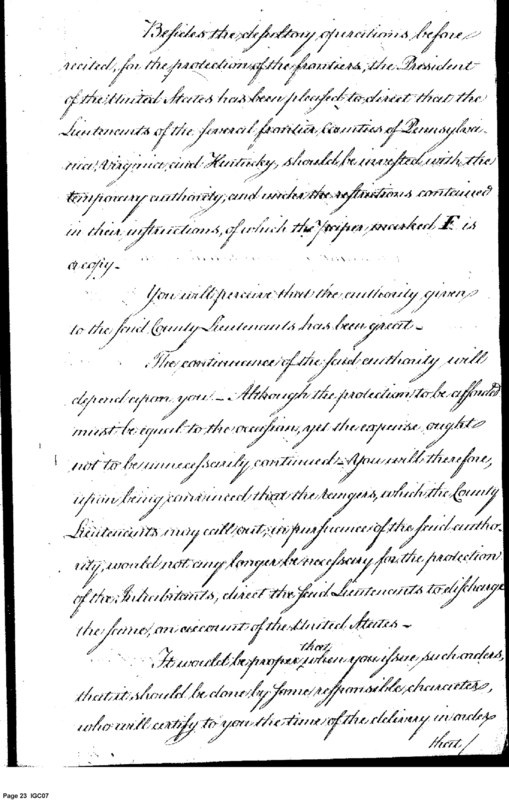 Besides the desultory operations before
recited, for the protection of the frontiers, the President
of the United States has been pleased to direct that the
Lieutenants of the several frontier Counties of Pennsylva-
nia, Virginia, and Kentucky, should be invested with the
temporary authority, and under the restrictions contained
in their instructions, of which the paper, marked F is
a copy-
You will perceive that the authority given
to the said County Lieutenants has been great-
The continuance of the said authority will
depend upon you - Although the protection to be afforded
must be equal to the occasion, yet the expense ought
not to be unnecessarily continued - You will therefore,
upon being convinced that the rangers, which the County
Lieutenants may call out, in pursuance of the said autho-
rity, would not any longer be necessary for the protection
of the Inhabitants, direct the said Lieutenants to discharge
the same, on account of the United States-
that
It would be proper when you issue such orders,
that it should be done by some responsible character,
who will certify to you the time of the delivery in order
that/
Page 23 IGC07